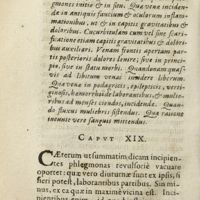 gmones initio & in satu. Qua vena inciden-
da in antiquis sanctum & ocularum inflam-
mationibus, ut & in capitis gravitatibus &
doloribus. Cucurbitulam cum vel sine scari-
ficatione etiam capitis gravitatibus & dolori-
bus auxiliari. Venam frontis apertam par-
tis posterioris dolores levare, sive in princi-
pio, sive in statu morbi. Quandonam quas-
vis ad libitum venas incidere liberum.
Qua vena in podagricis, epilepticis, verti-
ginosis, hæmorrhoidibus laborantibus, & mulie-
ribus ad menses ciendos, incidenda. Quan-
do fluxus muliebris sistendus. Qua ratione
invenire vero sanguis mittendus.
CAPVT XIX.
CÆterum ut summatim dicam incipien-
tes phlegmonas revulsoriè vacuare
oportet: quæ verò diuturnæ sunt ex ipsis, si
fieri potest, laborantibus partibus. Sin mi-
nus, ex ea quæ in maximè vicina est. Inci-